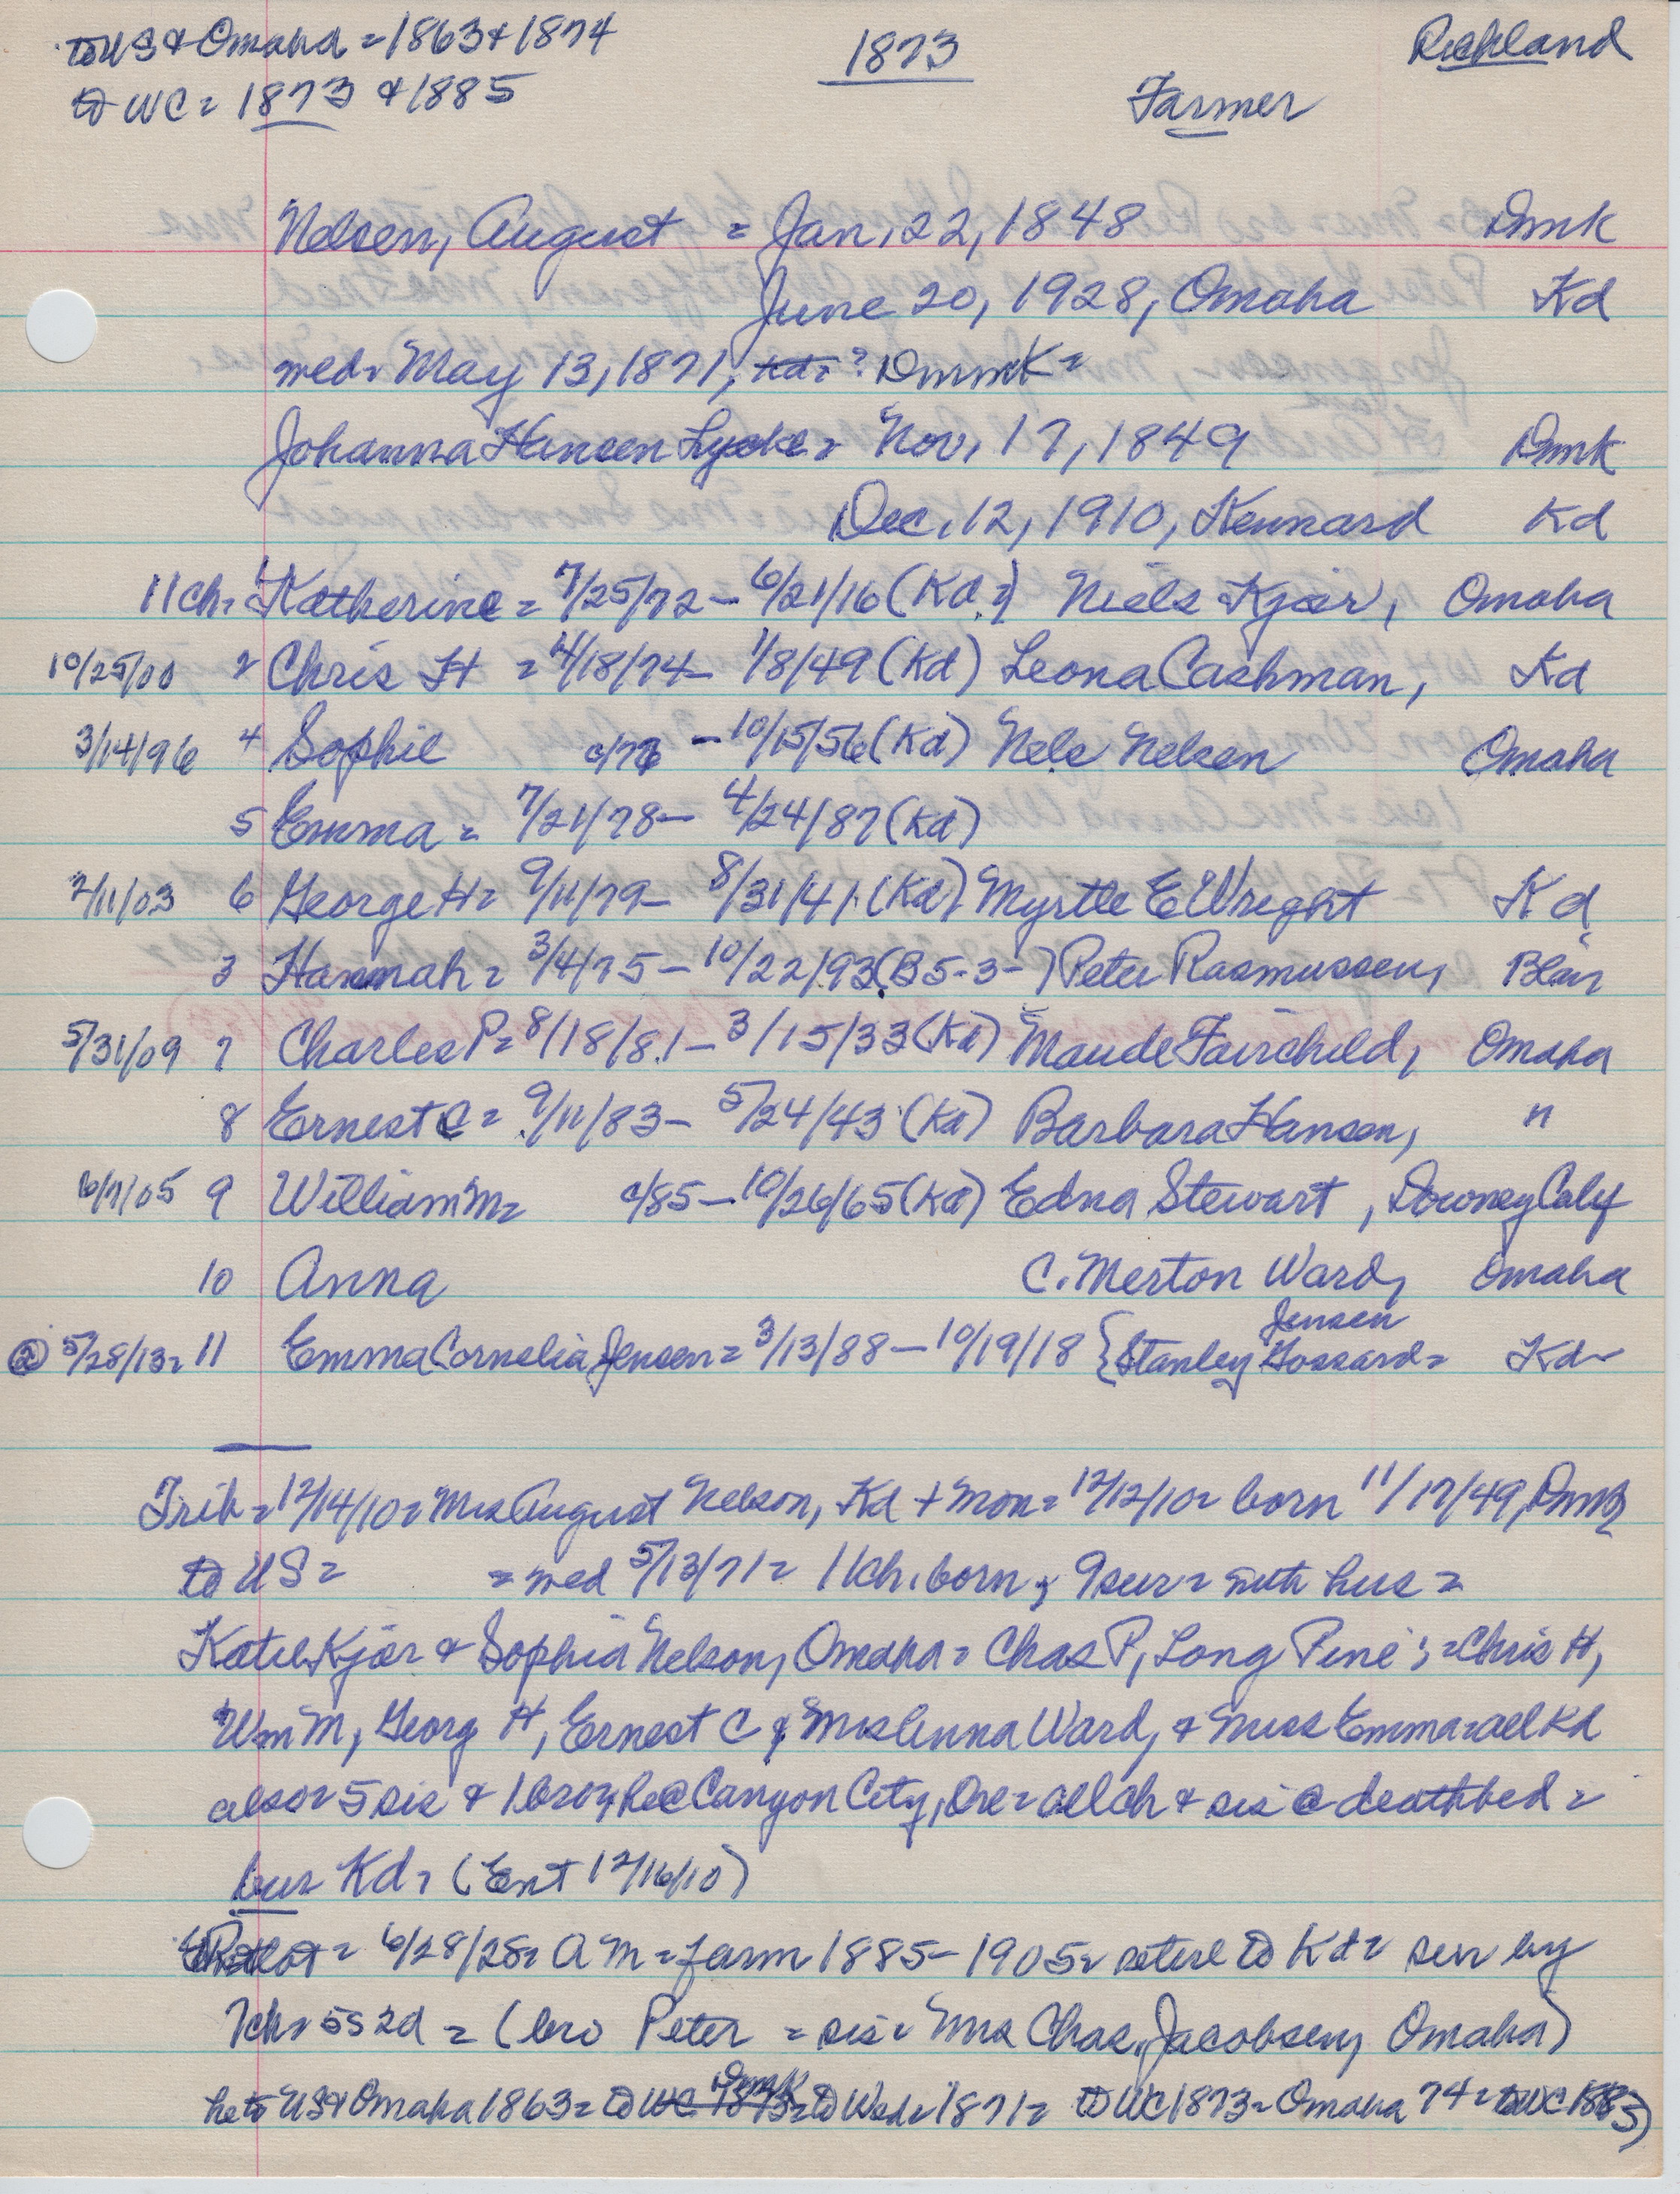 to US & Omaha = 1863 & 1874
1873
Richland
to WC = 1873 & 1885
Farmer
Nelsen, August = Jan, 22, 1848 Dmk
June 20, 1928, Omaha Kd
med = May 13, 1871, Kd = ? Dmmk =
Johanna Hansen Lycke = Nov, 17, 1849 Dmk
Dec, 12, 1910, Kennard Kd
11 ch = 1 Katherine = 7/25/72 - 6/21/16 (Kd =) Niels Kjar, Omaha
10/25/00 2 Chris H = 4/18/74 - 1/8/49 (Kd) Leona Cashman, Kd
3/14/96 4 Sophie c/76 - 10/15/56 (Kd) Nels Nelsen Omaha
5 Emma = 7/21/78 - 4/24/87 (Kd)
2/11/03 6 George H = 9/11/79 - 8/31/41 (Kd) Myrtle E Wright Kd
3 Hannah = 3/4/75 - 10/22/93 (B 5-3-) Peter Rasmussen, Blair
5/31/09 7 Charles P = 8/18/81 - 3/15/33 (Kd) Maude Fairchild, Omaha
8 Ernest C = 9/11/83 - 5/24/43 (Kd) Barbara Hansen, "
6/7/05 9 William M = c/85 - 10/26/65 (Kd) Edna Stewart, Downey Calif
10 Anna C. Merton Ward, Omaha
Jensen
② 5/28/13 = 11 Emma Cornelia Jensen = 3/13/88 - 10/19/18 { Stanley Gossard = Kd
Trib = 12/14/10 = Mrs August Nelson, Kd + mon = 12/12/10 = born 11/17/49, Dmk
to US = = med 5/13/71 = 11 ch. born, 9 sur = with hus =
Katie Kjar & Sophia Nelson, Omaha = Chas P, Long Pine ; = Chris H,
Wm M, Georg H, Ernest C & Mrs Anna Ward, & Miss Emma = all Kd
also = 5 sis & 1 bro, he @ Canyon City, Ore = all ch & sis @ deathbed =
bur Kd = (Ent 12/16/10)
= 6/28/28 = A M = farm 1885 - 1905 = retire to Kd = sur by
7 ch = 5s 2d = (bro Peter = sis = Mrs Chas, Jacobsen, Omaha)
Dmk
he to US & Omaha 1863 = to WC 1873 = to Wed = 1871 = to WC 1873 = Omaha 74 = to WC 1885)